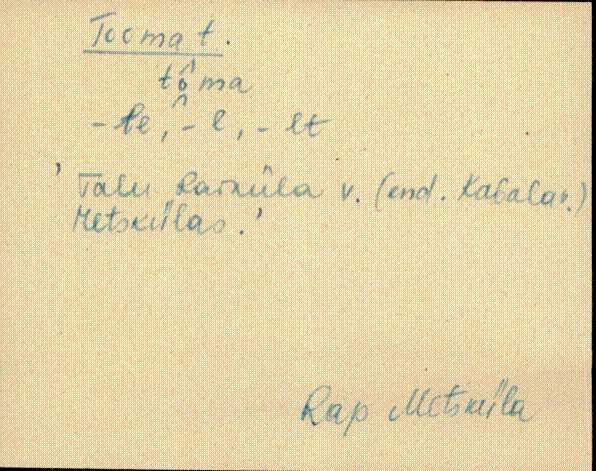 Tooma t.
tô̭ma
-le, -l, -lt
'Talu Raiküla v. (end. Kabala v.)
Metskülas.'
Rap Metsküla